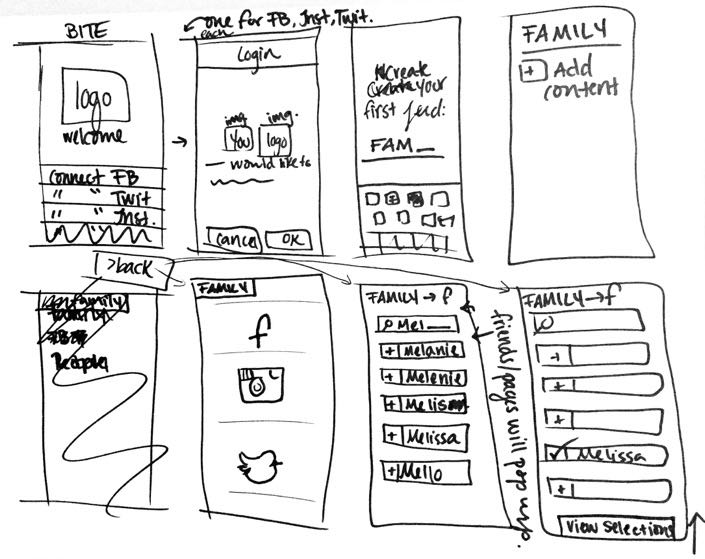 BITE
logo
welcome
Connect FB
" " Twit
" " Inst.
one for FB, Inst, Twit.
each
Login
img
img.
You
logo
would like to
cancel
OK
Create
Create your
first feed:
FAM_
FAMILY
+ Add
content
>back
Family
FAMILY
f
FAMILY → f
Mel__
+ Melanie
+ Melenie
+ Melis
+ Melissa
+ Mello
friends/pages will pop up.
FAMILY → f
+
+
+
✓ Melissa
+
View Selections